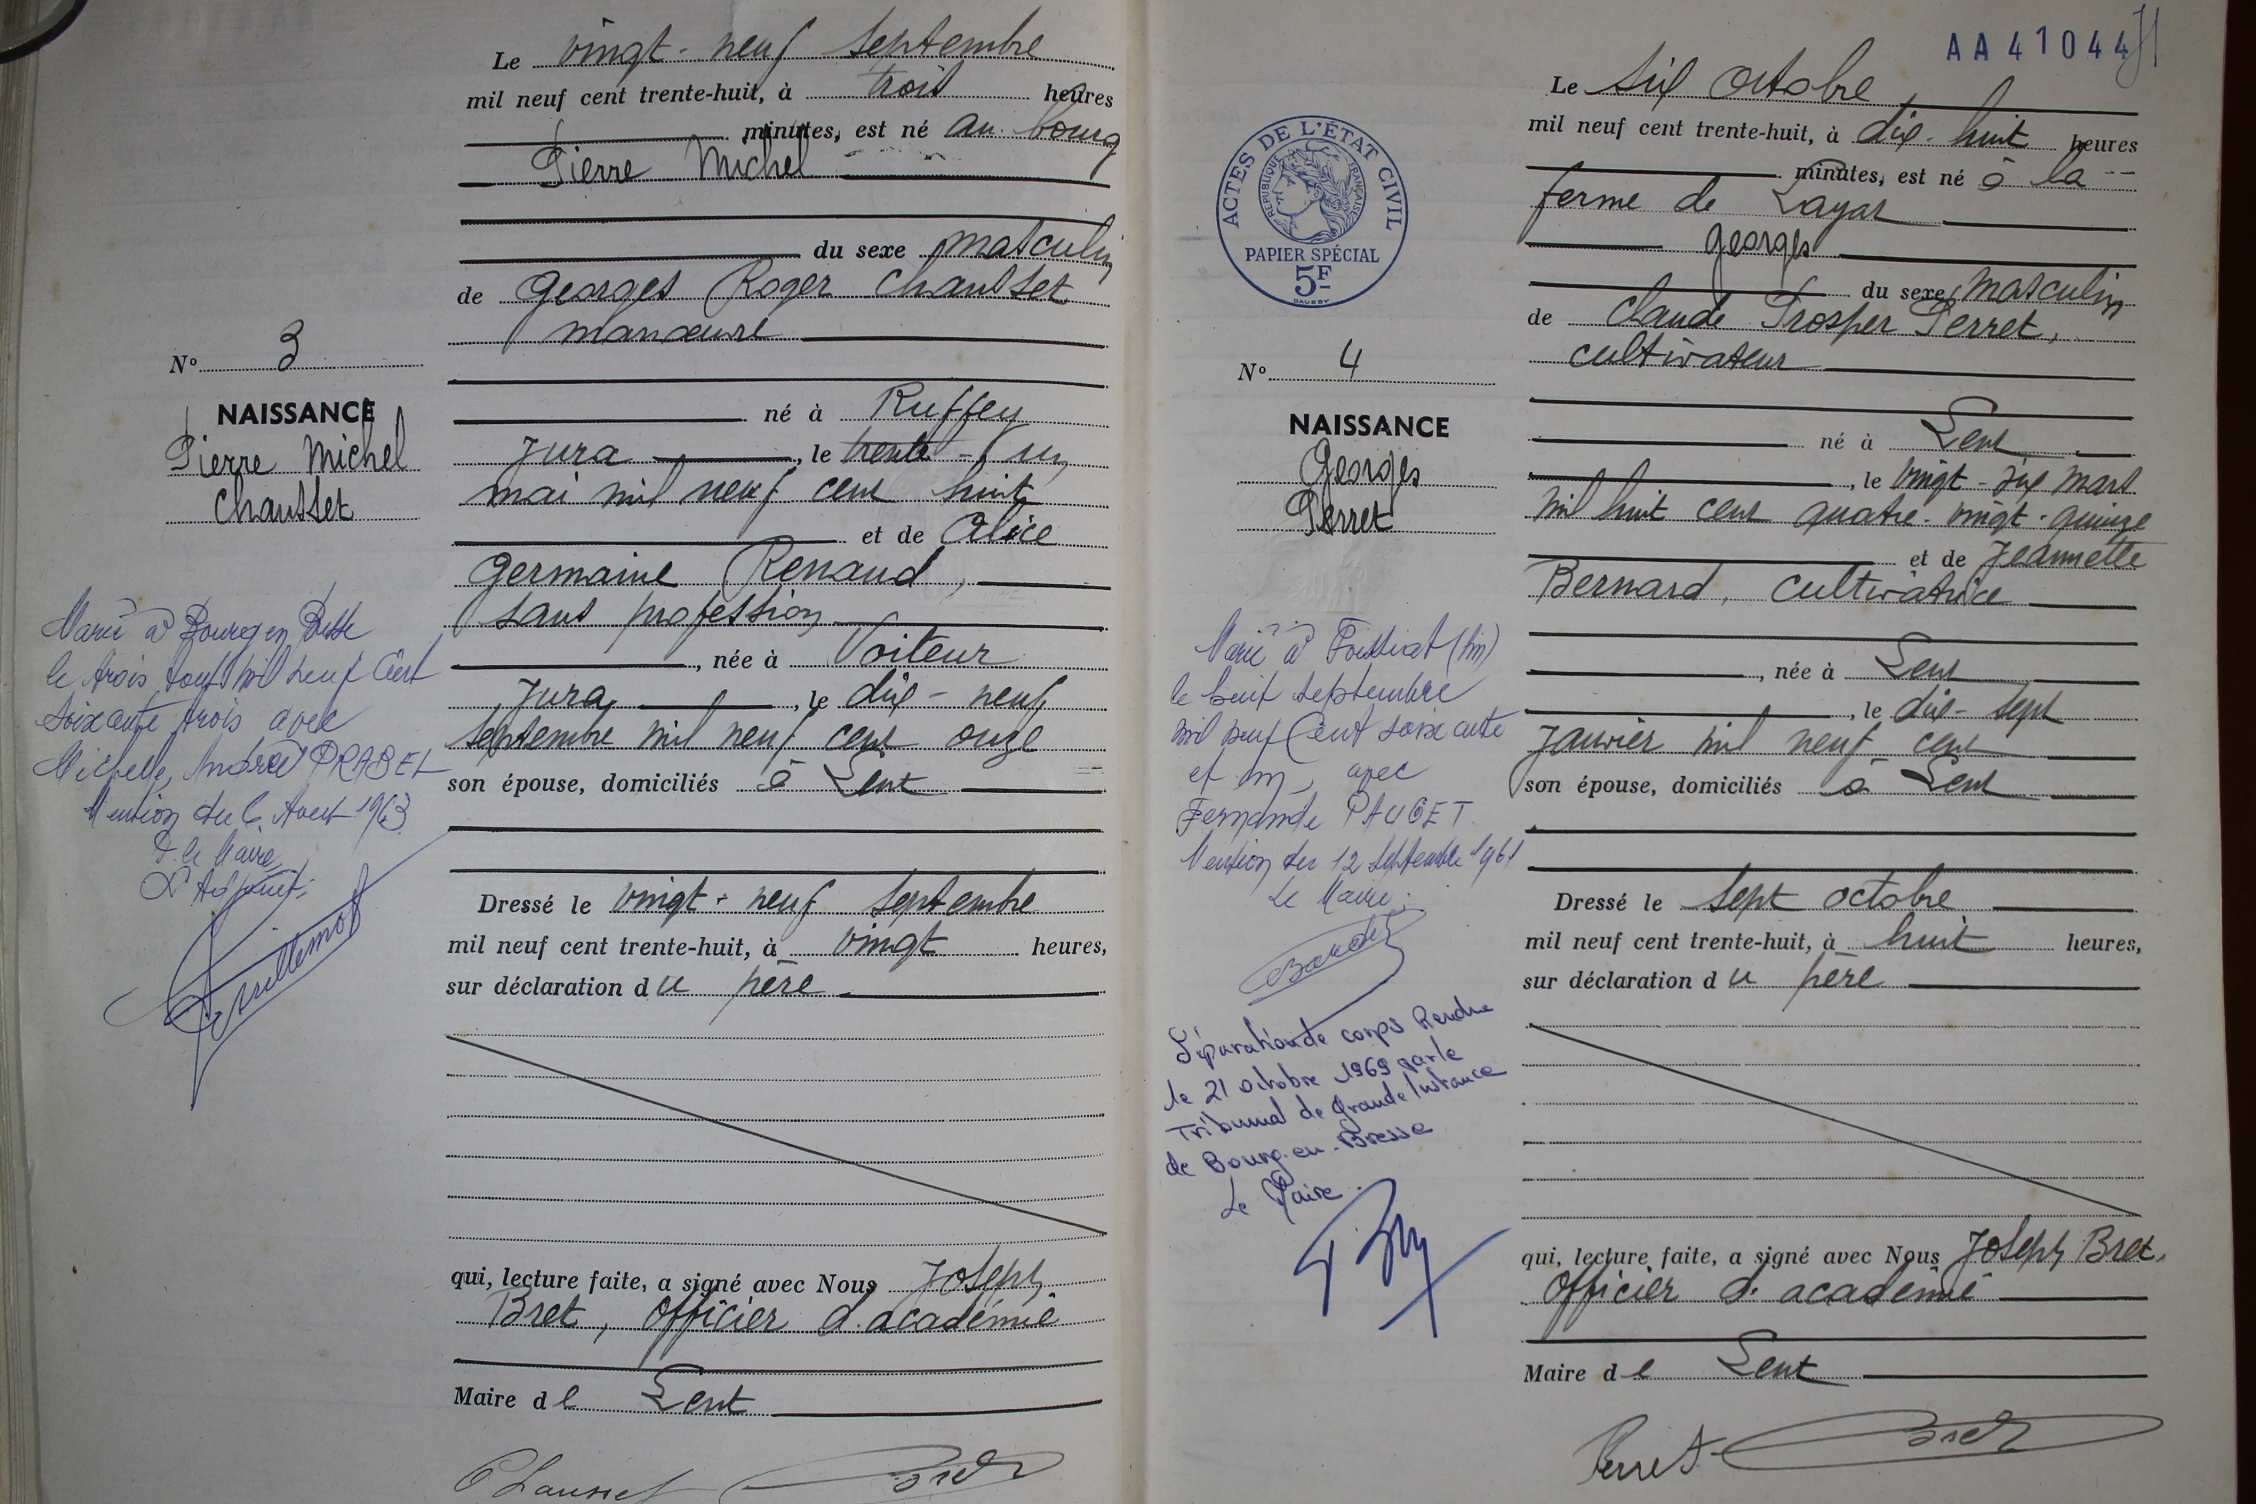 Le vingt-neuf septembre
mil neuf cent trente-huit, à trois heures
minutes, est né au bourg
Pierre Michel
du sexe masculin
de Georges Roger Chausset
manœuvre
N° 3
né à Ruffey
NAISSANCE
Pierre Michel
Chausset
Jura, le trente-un
mai mil neuf cent huit
et de Alice
Germaine Renaud,
sans profession
, née à Voiteur
Jura, le dix-neuf
septembre mil neuf cent onze
son épouse, domiciliés à Lent
Marié à Bourg en Bresse
le trois Août mil neuf Cent
soixante trois avec
Michelle, Andrée PRABEL
Mention du 6 Août 1963
P. le Maire
L'Adjoint:
Dressé le vingt-neuf septembre
mil neuf cent trente-huit, à vingt heures,
sur déclaration du père
qui, lecture faite, a signé avec Nous Joseph
Bret, officier d'académie
Maire de Lent
Chausset Bret
AA41044
Le six octobre
mil neuf cent trente-huit, à dix-huit heures
minutes, est né à la
ferme de Layat
Georges
du sexe masculin
de Claude Prosper Perret,
cultivateur
ACTES DE L'ÉTAT CIVIL
RÉPUBLIQUE FRANÇAISE
PAPIER SPÉCIAL
5F
N° 4
né à Lent
NAISSANCE
Georges
Perret
, le vingt-six mars
mil huit cent quatre-vingt-quinze
et de Jeannette
Bernard, cultivatrice
, née à Lent
, le dix-sept
Janvier mil neuf cent
son épouse, domiciliés à Lent
Marié à Foissiat (Ain)
le huit septembre
mil neuf Cent soixante
et un, avec
Fernande PAUGET
Mention du 12 septembre 1961
Le Maire:
Bardet
Séparation de corps Rendue
le 21 octobre 1969 par le
Tribunal de Grande Instance
de Bourg-en-Bresse
Le Maire
Dressé le sept octobre
mil neuf cent trente-huit, à huit heures,
sur déclaration du père
qui, lecture faite, a signé avec Nous Joseph Bret,
officier d'académie
Maire de Lent
Perret Bret